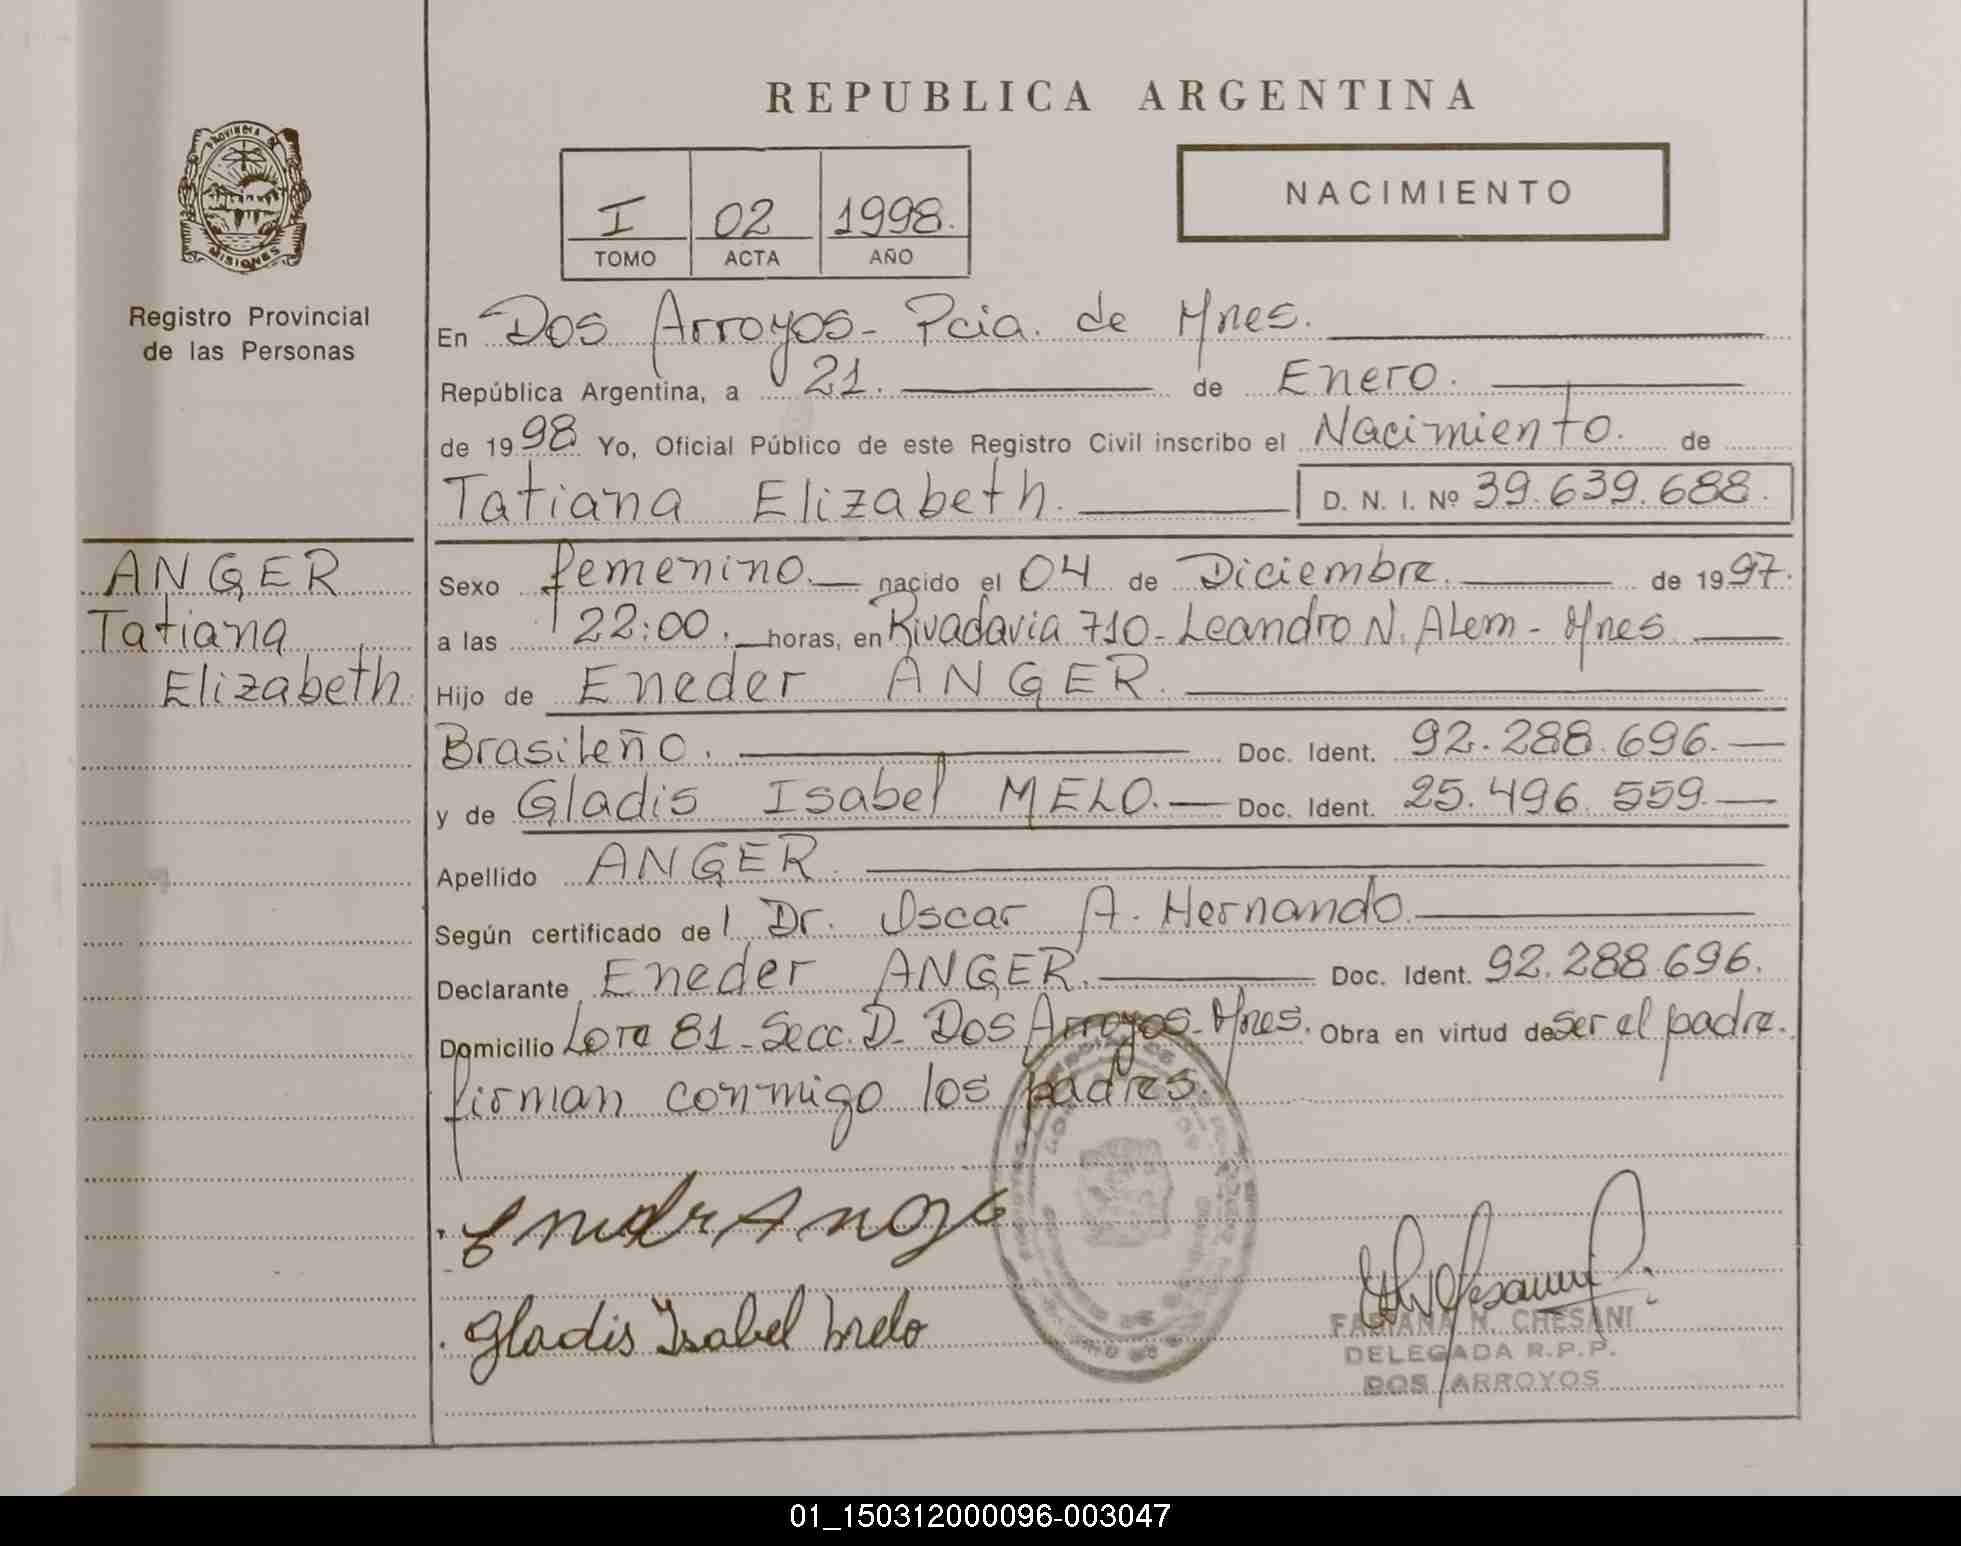 REPUBLICA ARGENTINA
PROVINCIA DE
MISIONES
Registro Provincial
de las Personas
I 02 1998.
TOMO ACTA AÑO
NACIMIENTO
En Dos Arroyos - Pcia. de Mnes.
República Argentina, a 21. de Enero.
de 1998 Yo, Oficial Público de este Registro Civil inscribo el Nacimiento. de
Tatiana Elizabeth. D. N. I. Nº 39.639.688.
ANGER
Tatiana
Elizabeth
Sexo femenino. nacido el 04 de Diciembre. de 1997.
a las 22:00. horas, en Rivadavia 710 - Leandro N. Alem - Mnes
Hijo de Eneder ANGER.
Brasileño. Doc. Ident. 92.288.696.
y de Gladis Isabel MELO. Doc. Ident. 25.496.559.
Apellido ANGER.
Según certificado del Dr. Oscar A. Hernando.
Declarante Eneder ANGER. Doc. Ident. 92.288.696.
Domicilio Lote 81 - Secc. D - Dos Arroyos - Mnes. Obra en virtud de ser el padre.
firman conmigo los padres.
Eneder Anger
Gladis Isabel melo
FABIANA N. CHESANI
DELEGADA R.P.P.
DOS ARROYOS
01_150312000096-003047